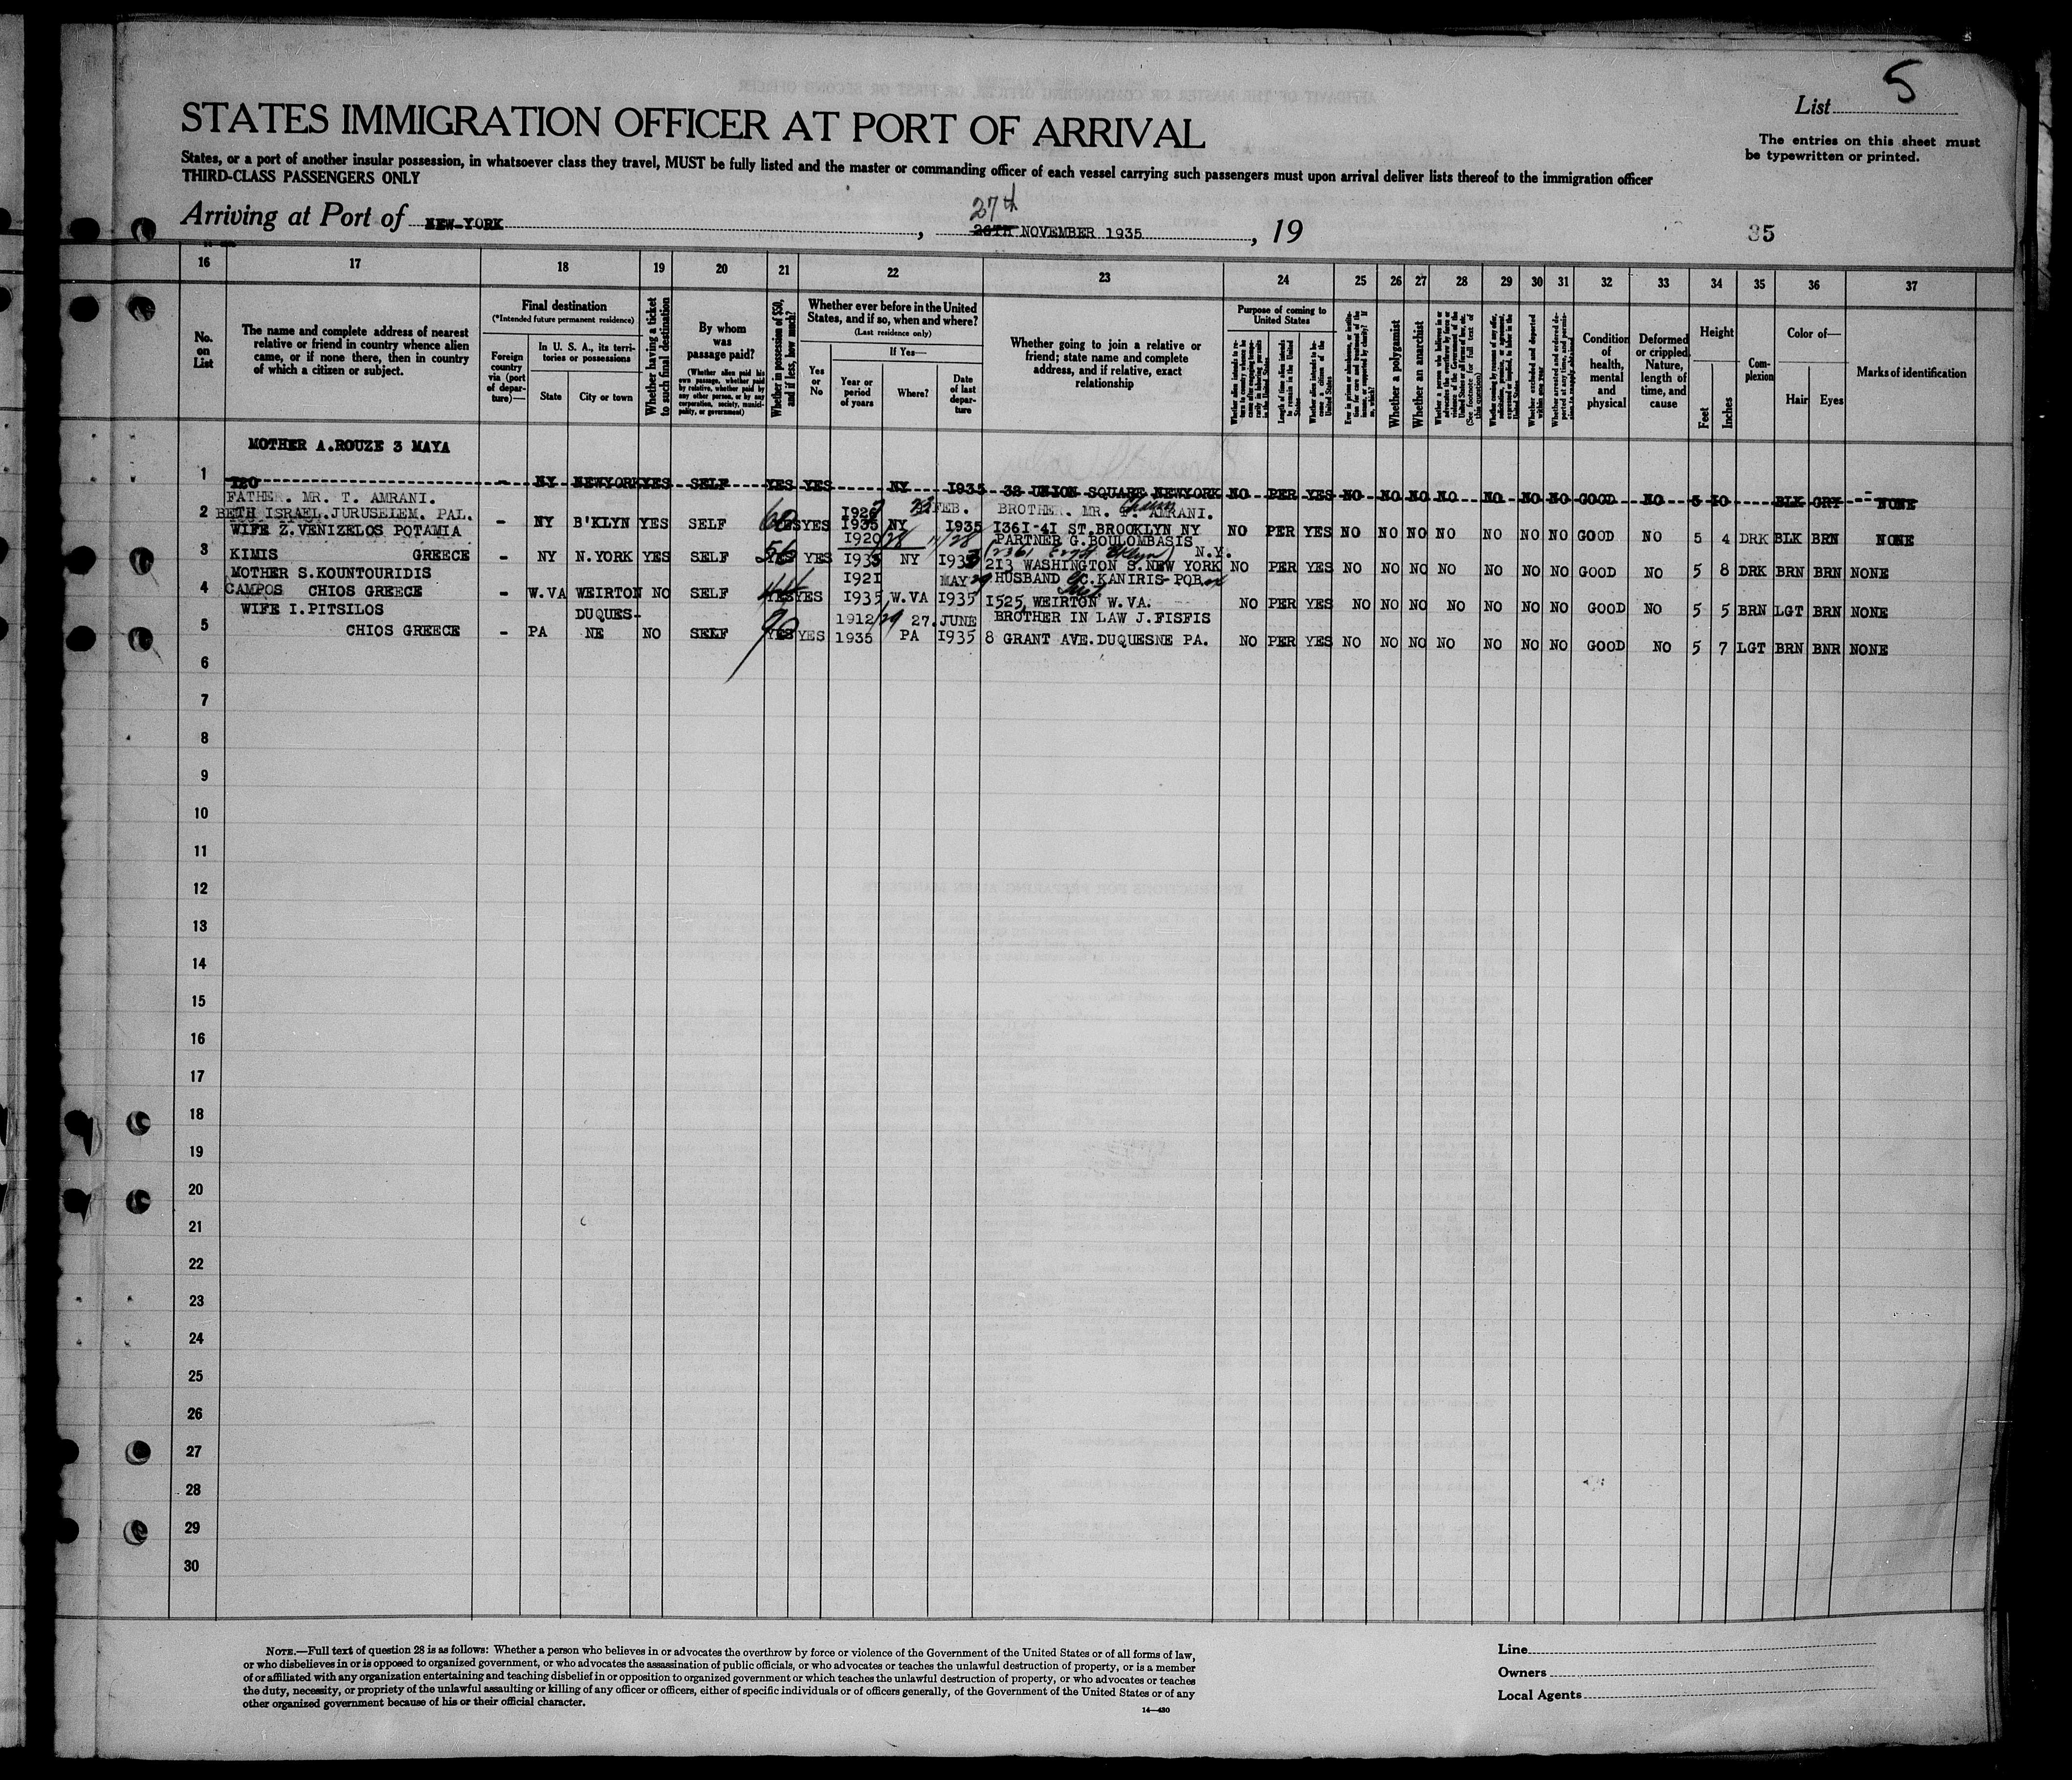 5
List
STATES IMMIGRATION OFFICER AT PORT OF ARRIVAL
The entries on this sheet must be typewritten or printed.
States, or a port of another insular possession, in whatsoever class they travel, MUST be fully listed and the master or commanding officer of each vessel carrying such passengers must upon arrival deliver lists thereof to the immigration officer
THIRD-CLASS PASSENGERS ONLY
27th
Arriving at Port of NEW-YORK, 26TH NOVEMBER 1935, 19 35
16 17 18 19 20 21 22 23 24 25 26 27 28 29 30 31 32 33 34 35 36 37
No. on List
The name and complete address of nearest relative or friend in country whence alien came, or if none there, then in country of which a citizen or subject.
Final destination
(*Intended future permanent residence)
Foreign country via (port of departure)—
In U. S. A., its territories or possessions
State
City or town
Whether having a ticket to such final destination
By whom was passage paid?
(Whether alien paid his own passage, whether paid by relative, whether paid by any other person, or by any corporation, society, municipality, or government)
Whether in possession of $50, and if less, how much?
Whether ever before in the United States, and if so, when and where?
(Last residence only)
Yes or No
If Yes—
Year or period of years
Where?
Date of last departure
Whether going to join a relative or friend; state name and complete address, and if relative, exact relationship
Purpose of coming to United States
Whether a polygamist
Whether an anarchist
Condition of health, mental and physical
Deformed or crippled. Nature, length of time, and cause
Height
Feet
Inches
Complexion
Color of—
Hair
Eyes
Marks of identification
MOTHER A.ROUZE 3 MAYA
1 - NY NEWYORK YES SELF YES YES NY 1935 38 UNION SQUARE NEWYORK NO PER YES NO NO NO NO NO NO NO GOOD NO 5 10 BLK GRY NONE
FATHER. MR. T. AMRANI. 23 FEB. BROTHER. MR. AMRANI.
2 BETH ISRAEL.JURUSEIEM. PAL. - NY B'KLYN YES SELF 60 YES YES 1935 NY 1935 1361-41 ST.BROOKLYN NY NO PER YES NO NO NO NO NO NO NO GOOD NO 5 4 DRK BLK BRN NONE
WIFE Z.VENIZELOS POTAMIA 1920/28 11/28 PARTNER G.BOULOMBASIS N.Y.
3 KIMIS GREECE - NY N.YORK YES SELF YES YES 1935 NY 1933 213 WASHINGTON S.NEW YORK NO PER YES NO NO NO NO NO NO NO GOOD NO 5 8 DRK BRN BRN NONE
MOTHER S.KOUNTOURIDIS 1921 MAY 29 HUSBAND C.KANIRIS-POB
4 CAMPOS CHIOS GREECE - W.VA WEIRTON NO SELF YES YES 1935 W.VA 1935 1525, WEIRTON W.VA. NO PER YES NO NO NO NO NO NO NO GOOD NO 5 5 BRN LGT BRN NONE
WIFE I.PITSILOS DUQUES- 1912/29 27.JUNE BROTHER IN LAW J.FISFIS
5 CHIOS GREECE - PA NE NO SELF 90 YES YES 1935 PA 1935 8 GRANT AVE.DUQUESNE PA. NO PER YES NO NO NO NO NO NO NO GOOD NO 5 7 LGT BRN BNR NONE
6
7
8
9
10
11
12
13
14
15
16
17
18
19
20
21
22
23
24
25
26
27
28
29
30
NOTE.—Full text of question 28 is as follows: Whether a person who believes in or advocates the overthrow by force or violence of the Government of the United States or of all forms of law,
or who disbelieves in or is opposed to organized government, or who advocates the assassination of public officials, or who advocates or teaches the unlawful destruction of property, or is a member
of or affiliated with any organization entertaining and teaching disbelief in or opposition to organized government or which teaches the unlawful destruction of property, or who advocates or teaches
the duty, necessity, or propriety of the unlawful assaulting or killing of any officer or officers, either of specific individuals or of officers generally, of the Government of the United States or of any
other organized government because of his or their official character.
14—430
Line
Owners
Local Agents